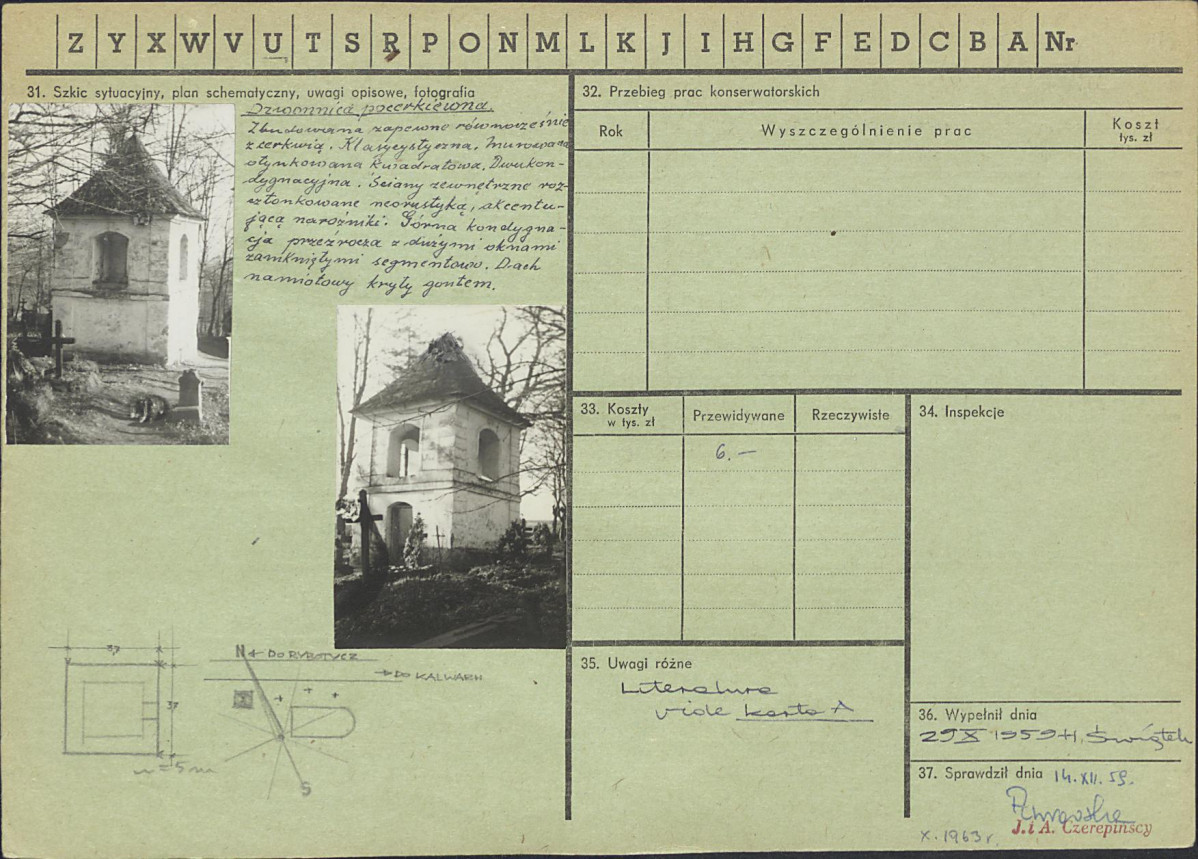 Z Y X W V U T S R P O N M L K J I H G F E D C B A Nr
31. Szkic sytuacyjny, plan schematyczny, uwagi opisowe, fotografia
Dzwonnica pocerkiewna.
Zbudowana zapewne równocześnie
z cerkwią. Klasycystyczna. Murowana
otynkowana kwadratowa. Dwukon-
dygnacyjna. Ściany zewnętrzne roz-
członkowane neorustyką, akcentu-
jącą narożniki. Górna kondygna-
cja przeźrocza z dużymi oknami
zamkniętymi segmentowo. Dach
namiotowy kryty gontem.
3,7
37
w = 5 m
N ← DO RYBOTYCZ
→ DO KALWARII
S
32. Przebieg prac konserwatorskich
Rok
Wyszczególnienie prac
Koszt
tys. zł
33. Koszty
w tys. zł
Przewidywane
Rzeczywiste
6.—
34. Inspekcje
35. Uwagi różne
Literatura
vide karta A
36. Wypełnił dnia
29 X 1959 H. Świątek
37. Sprawdził dnia 14.XII.59.
J. i A. Czerepińscy
X.1963 r.